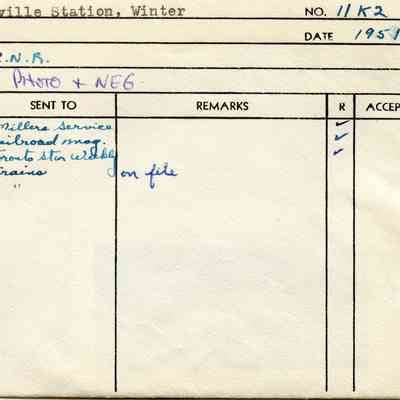 ville Station, Winter NO. 11K2
DATE 1951
.N.R.
PHOTO + NEG
SENT TO REMARKS R ACCEP
Millers Service ✓
ailroad mag. ✓
oronto Star Weekly ✓
Trains on file
"